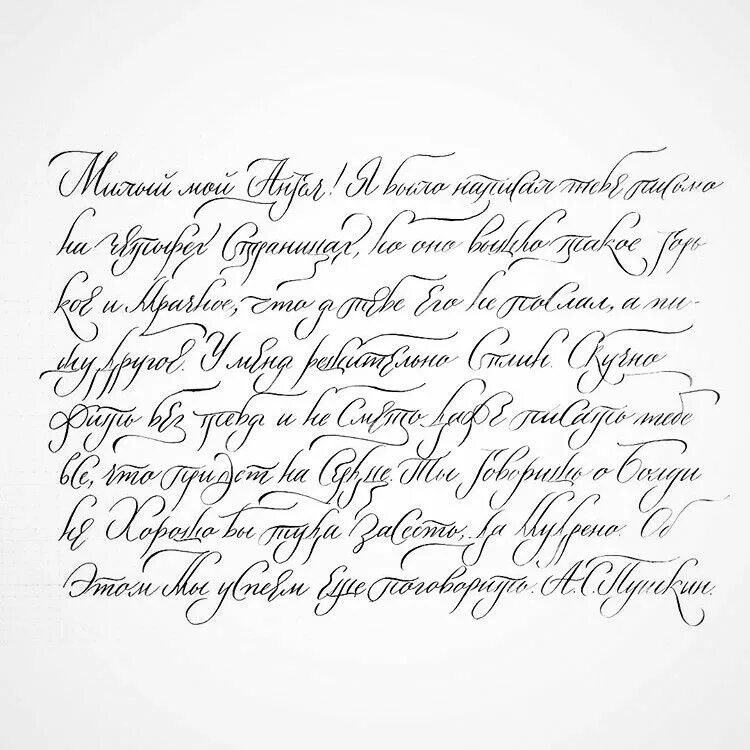 Милый мой Ангел! Я было написал тебе письмо
на четырех страницах, но оно вышло такое горь
кое и мрачное, что я тебе его не послал, а пи-
шу другое. У меня решительно сплин. Скучно
жить без тебя и не сметь даже писать тебе
все, что придет на сердце. Ты говоришь о Болди
не. Хорошо бы туда засесть, да мудрено. Об
этом мы успеем еще поговорить. А.С.Пушкин.